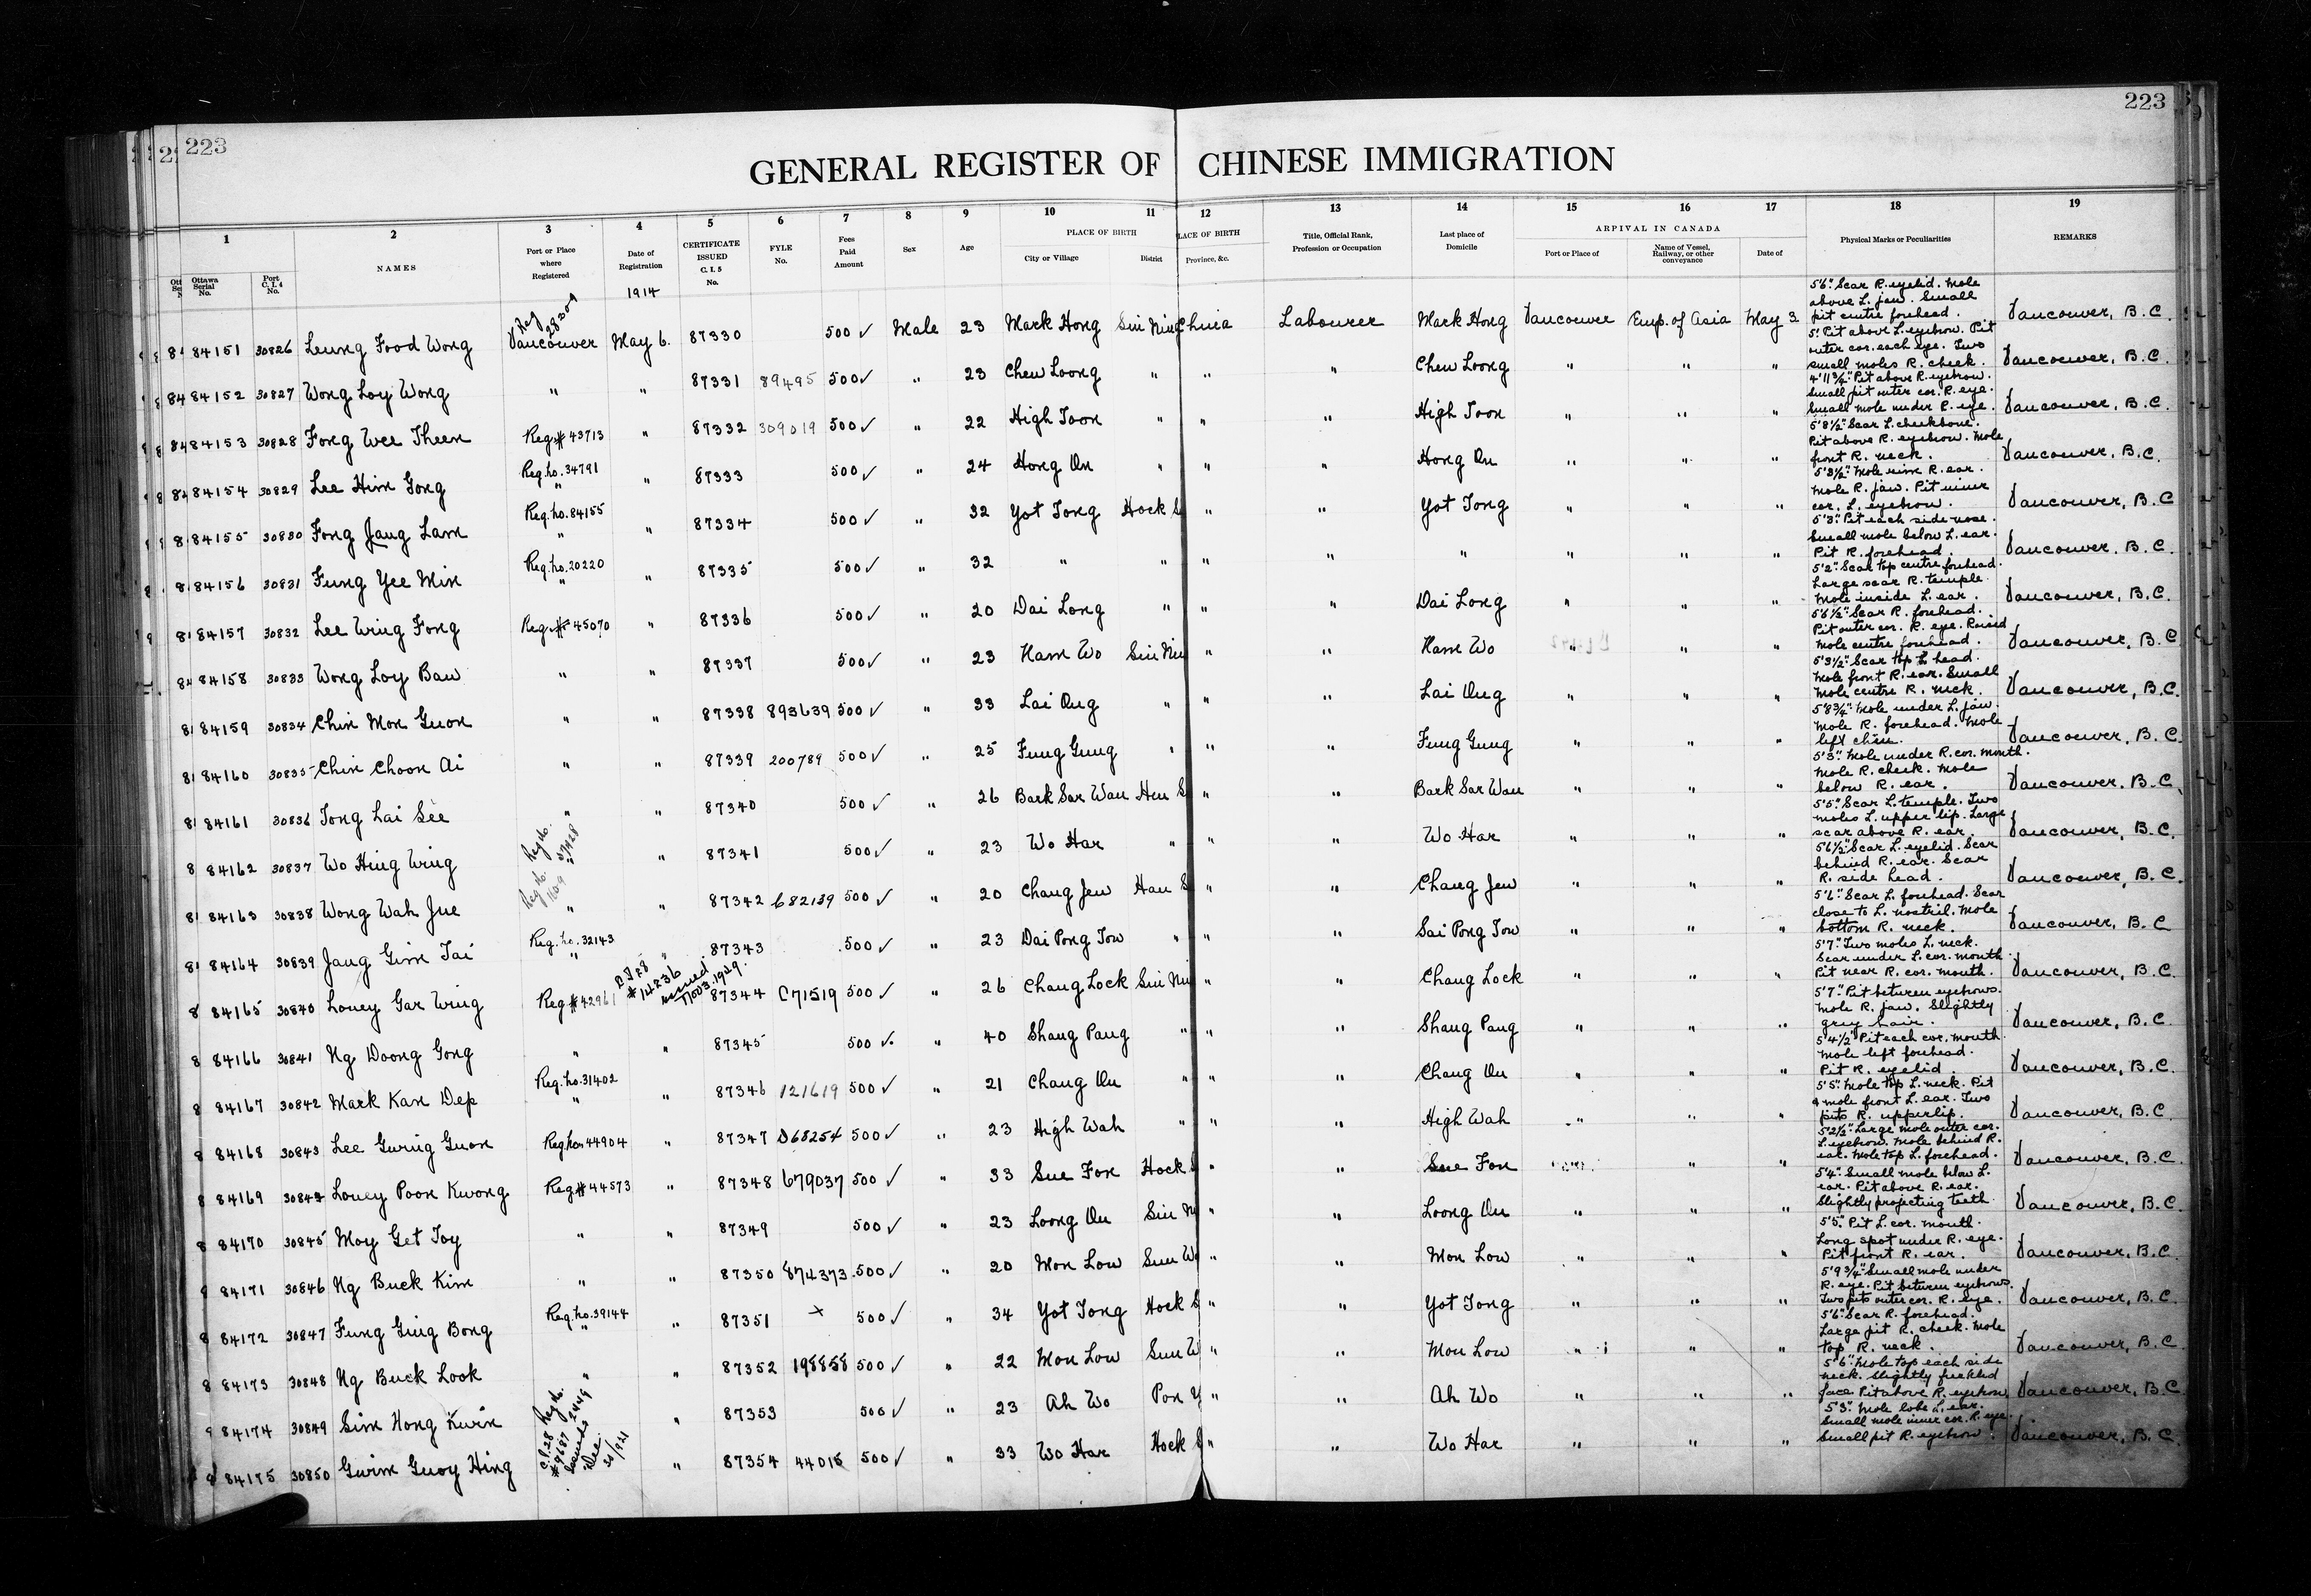 223
223
GENERAL REGISTER OF CHINESE IMMIGRATION
1 2 3 4 5 6 7 8 9 10 11 12 13 14 15 16 17 18 19
Ottawa Serial No. Port C. I. 4 No. NAMES Port or Place where Registered Date of Registration CERTIFICATE ISSUED C. I. 5 No. FYLE No. Fees Paid Amount Sex Age PLACE OF BIRTH City or Village District PLACE OF BIRTH Province, &c. Title, Official Rank, Profession or Occupation Last place of Domicile ARRIVAL IN CANADA Port or Place of Name of Vessel, Railway, or other conveyance Date of Physical Marks or Peculiarities REMARKS
1914
84151 30826 Leung Food Wong Reg 28309 Vancouver May 6. 87330 500 ✓ Male 23 Mark Hong Sin Ning China Labourer Mark Hong Vancouver Emp. of Asia May 3 5'6". Scar R. eyelid. Mole above L. jaw. Small pit centre forehead. Vancouver, B.C.
84152 30827 Wong Loy Wong " " 87331 89495 500 ✓ " 23 Chew Loong " " " Chew Loong " " " 5'. Pit above L. eyebrow. Pit outer cor. each eye. Two small moles R. cheek. Vancouver, B.C.
84153 30828 Fong Wee Theen Reg # 43713 " 87332 309019 500 ✓ " 22 High Toon " " " High Toon " " " 4'11¾". Pit above R. eyebrow. Small pit outer cor. R. eye. Small mole under R. eye. Vancouver, B.C.
84154 30829 Lee Him Gong Reg. no. 34791 " " 87333 500 ✓ " 24 Hong On " " " Hong On " " " 5'8½". Scar L. cheekbone. Pit above R. eyebrow. Mole front R. neck. Vancouver, B.C.
84155 30830 Fong Jang Lam Reg. no. 84155 " " 87334 500 ✓ " 32 Yot Tong Hock S " " Yot Tong " " " 5'3½". Mole rim R. ear. Mole R. jaw. Pit inner cor. L. eyebrow. Vancouver, B.C
84156 30831 Fung Yee Min Reg. no. 20220 " " 87335 500 ✓ " 32 " " " " " " " " 5'3". Pit each side nose. Small mole below L. ear. Pit R. forehead. Vancouver, B.C.
84157 30832 Lee Wing Fong Reg # 45070 " 87336 500 ✓ " 20 Dai Long " " " Dai Long " " " 5'2". Scar top centre forehead. Large scar R. temple. Mole inside L. ear. Vancouver, B.C.
84158 30833 Wong Loy Baw " " 87337 500 ✓ " 23 Ham Wo Sin Nin " " Ham Wo " " " 5'6½". Scar R. forehead. Pit outer cor. R. eye. Raised mole centre forehead. Vancouver, B.C
84159 30834 Chin Mon Guon " " 87338 893639 500 ✓ " 33 Lai Ong " " " Lai Ong " " " 5'3½". Scar top L. head. Mole front R. ear. Small mole centre R. neck. Vancouver, B.C.
84160 30835 Chin Choon Ai " " 87339 200789 500 ✓ " 25 Fung Gung " " " Fung Gung " " " 5'8¾". Mole under L. jaw. Mole R. forehead. Mole left chin. Vancouver, B.C.
84161 30836 Tong Lai See " " 87340 500 ✓ " 26 Bark Sar Wan Heu S " " Bark Sar Wan " " " 5'3". Mole under R. cor. mouth. Mole R. cheek. Mole below R. ear. Vancouver. B.C.
84162 30837 Wo Hing Wing Reg no. 37428 " " 87341 500 ✓ " 23 Wo Har " " " Wo Har " " " 5'5". Scar L. temple. Two moles L. upper lip. Large scar above R. ear. Vancouver, B.C.
84163 30838 Wong Wah Jue Reg no. " " 87342 682139 500 ✓ " 20 Chang Jew Hau S " " Chang Jew " " " 5'6½". Scar L. eyelid. Scar behind R. ear. Scar R. side head. Vancouver, B.C.
84164 30839 Jang Gim Tai Reg. no. 32143 " " 87343 500 ✓ " 23 Dai Pong Tow " " " Sai Pong Tow " " " 5'6". Scar L. forehead. Scar close to L. nostril. Mole bottom R. neck. Vancouver, B.C
84165 30840 Louey Gar Wing Reg # 42961 #14236 issued Nov 3. 1929. 87344 C71519 500 ✓ " 26 Chang Lock Sin Nin " " Chang Lock " " " 5'7". Two moles L. neck. Scar under L. cor. mouth. Pit near R. cor. mouth. Vancouver, B.C.
84166 30841 Ng Doong Gong " " 87345 500 ✓ " 40 Shang Pang " " " Shang Pang " " " 5'7". Pit between eyebrows. Mole R. jaw. Slightly grey hair. Vancouver, B.C.
84167 30842 Mark Kan Dep Reg. no. 31402 " " 87346 121619 500 ✓ " 21 Chang On " " " Chang On " " " 5'4½" Pit each cor. mouth. Mole left forehead. Pit R. eyelid. Vancouver, B.C.
84168 30843 Lee Gwing Guon Reg no 44904 " 87347 D68254 500 ✓ " 23 High Wah " " " High Wah " " " 5'5". Mole top L. neck. Pit & mole front L. ear. Two pits R. upperlip. Vancouver, B.C.
84169 30844 Louey Poon Kwong Reg # 44573 " 87348 679037 500 ✓ " 33 Sue Fon Hock S " " Sue Fon " " 5'2½". Large mole outer cor. L. eyebrow. Mole behind R. ear. Mole top L. forehead. Vancouver, B.C.
84170 30845 Moy Get Toy " " 87349 500 ✓ " 23 Loong On Sin N " " Loong On " " " 5'4". Small mole below L. ear. Pit above R. ear. Slightly projecting teeth. Vancouver, B.C.
84171 30846 Ng Buck Kim " " 87350 874373 500 ✓ " 20 Mon Low Sun W " " Mon Low " " " 5'5". Pit L. cor. mouth. Long spot under R. eye. Pit front R. ear. Vancouver, B.C.
84172 30847 Fung Ging Bong Reg. no. 39144 " " 87351 x 500 ✓ " 34 Yot Tong Hock S " " Yot Tong " " " 5'9¾". Small mole under R. eye. Pit between eyebrows. Two pits outer cor. R. eye. Vancouver, B.C.
84173 30848 Ng Buck Look " " 87352 198858 500 ✓ " 22 Mon Low Sun W " " Mon Low " " " 5'6". Scar R. forehead. Large pit R. cheek. Mole top R. neck. Vancouver, B.C
84174 30849 Sim Hong Kwin Reg no. 2449 " 87353 500 ✓ " 23 Ah Wo Pon Y " " Ah Wo " " " 5'6". Mole top each side neck. Slightly freckled face. Pit above R. eyebrow. Vancouver, B.C.
84175 30850 Gwim Guoy Hing C.I. 28 #9687 Issued Dec. 30/1921 " 87354 44015 500 ✓ " 33 Wo Har Hock S " " Wo Har " " " 5'3". Mole lobe L. ear. Small mole inner cor. R. eye. Small pit R. eyebrow. Vancouver, B.C